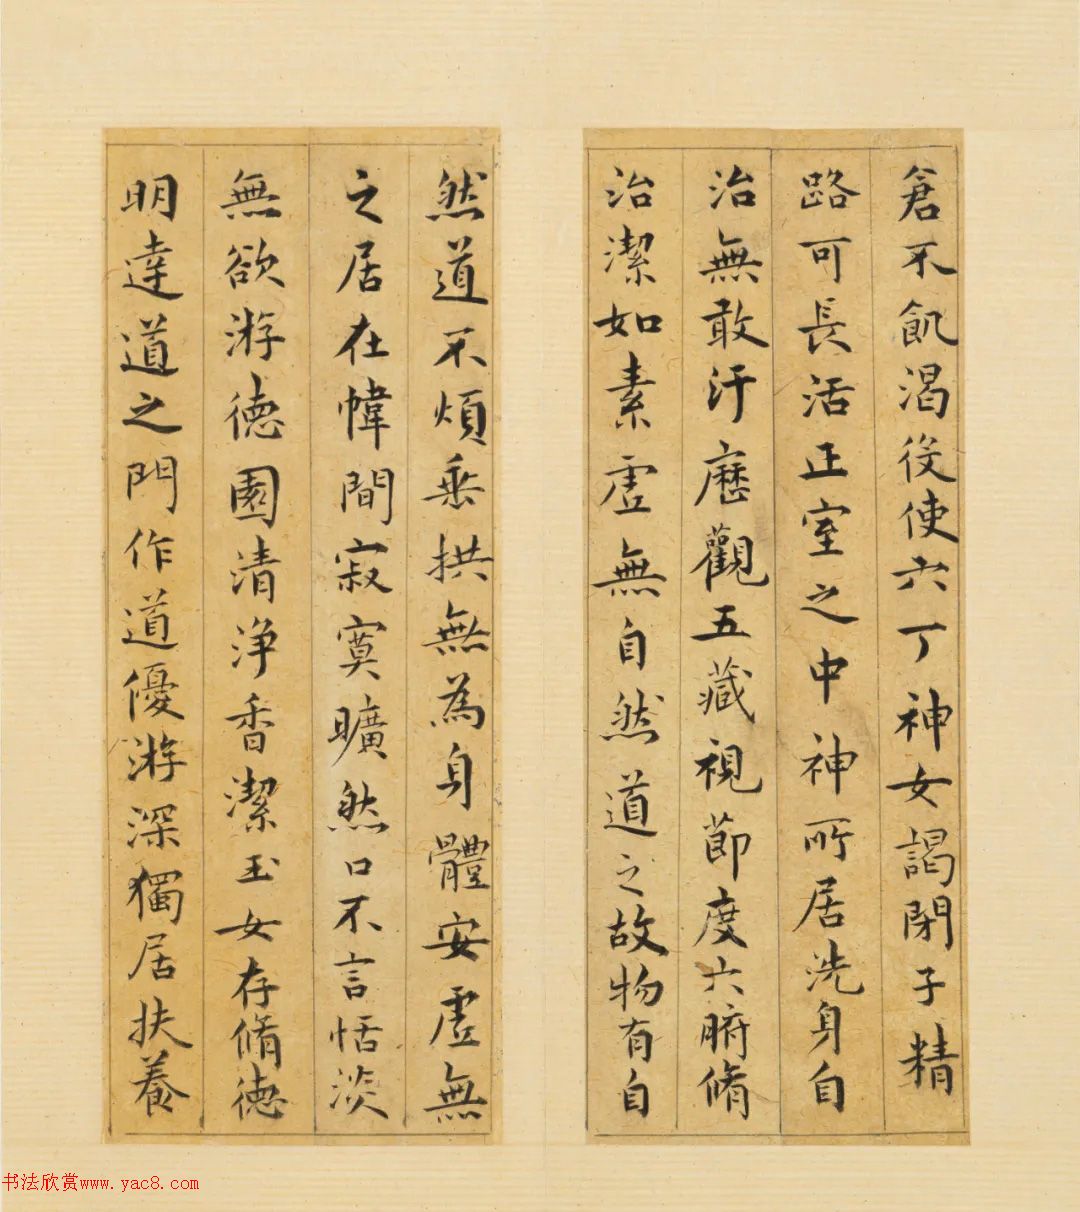 倉不飢渴役使六丁神女謁閉子精
路可長活正室之中神所居洗身自
治無敢汙歷觀五藏視節度六腑脩
治潔如素虛無自然道之故物有自
然道不煩垂拱無為身體安虛無
之居在幃間寂寞曠然口不言恬淡
無欲游德園清淨香潔玉女存脩德
明達道之門作道優游深獨居扶養
书法欣赏www.yac8.com